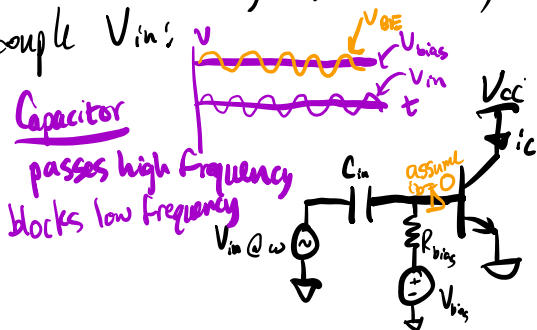 couple Vin:
V
VBE
Vbias
Vin
t
Capacitor
passes high frequency
blocks low frequency
VCC
ic
Cin
assume
ib≈0
Vin @ ω
~
Rbias
+
-
Vbias